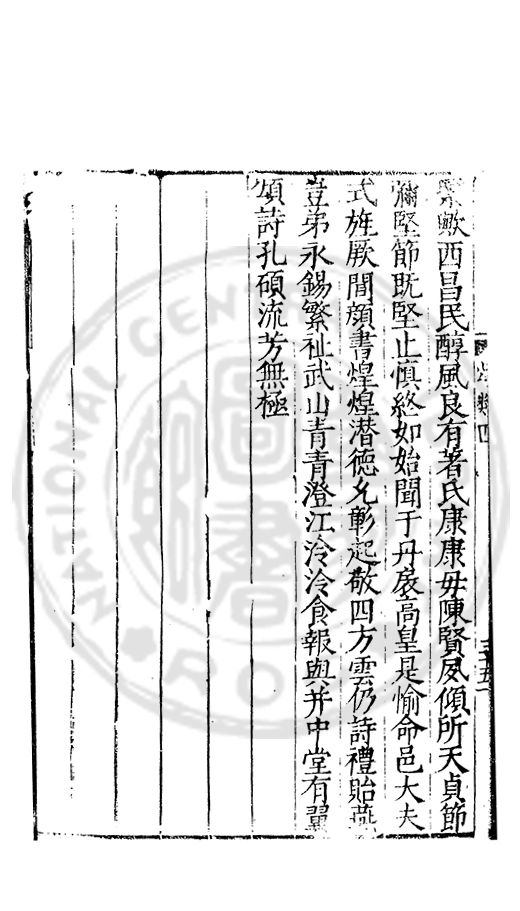 繄歟西昌民醇風良有著氏康康毋陳賢夙傾所天貞節
彌堅節既堅止慎終如始聞于丹扆高皇是愉命邑大夫
式旌厥閭顔書煌煌潜德允彰起敬四方雲仍詩禮貽燕
豈弟永錫繁祉武山青青澄江泠泠食報與并中堂有翼
頌詩孔碩流芳無極